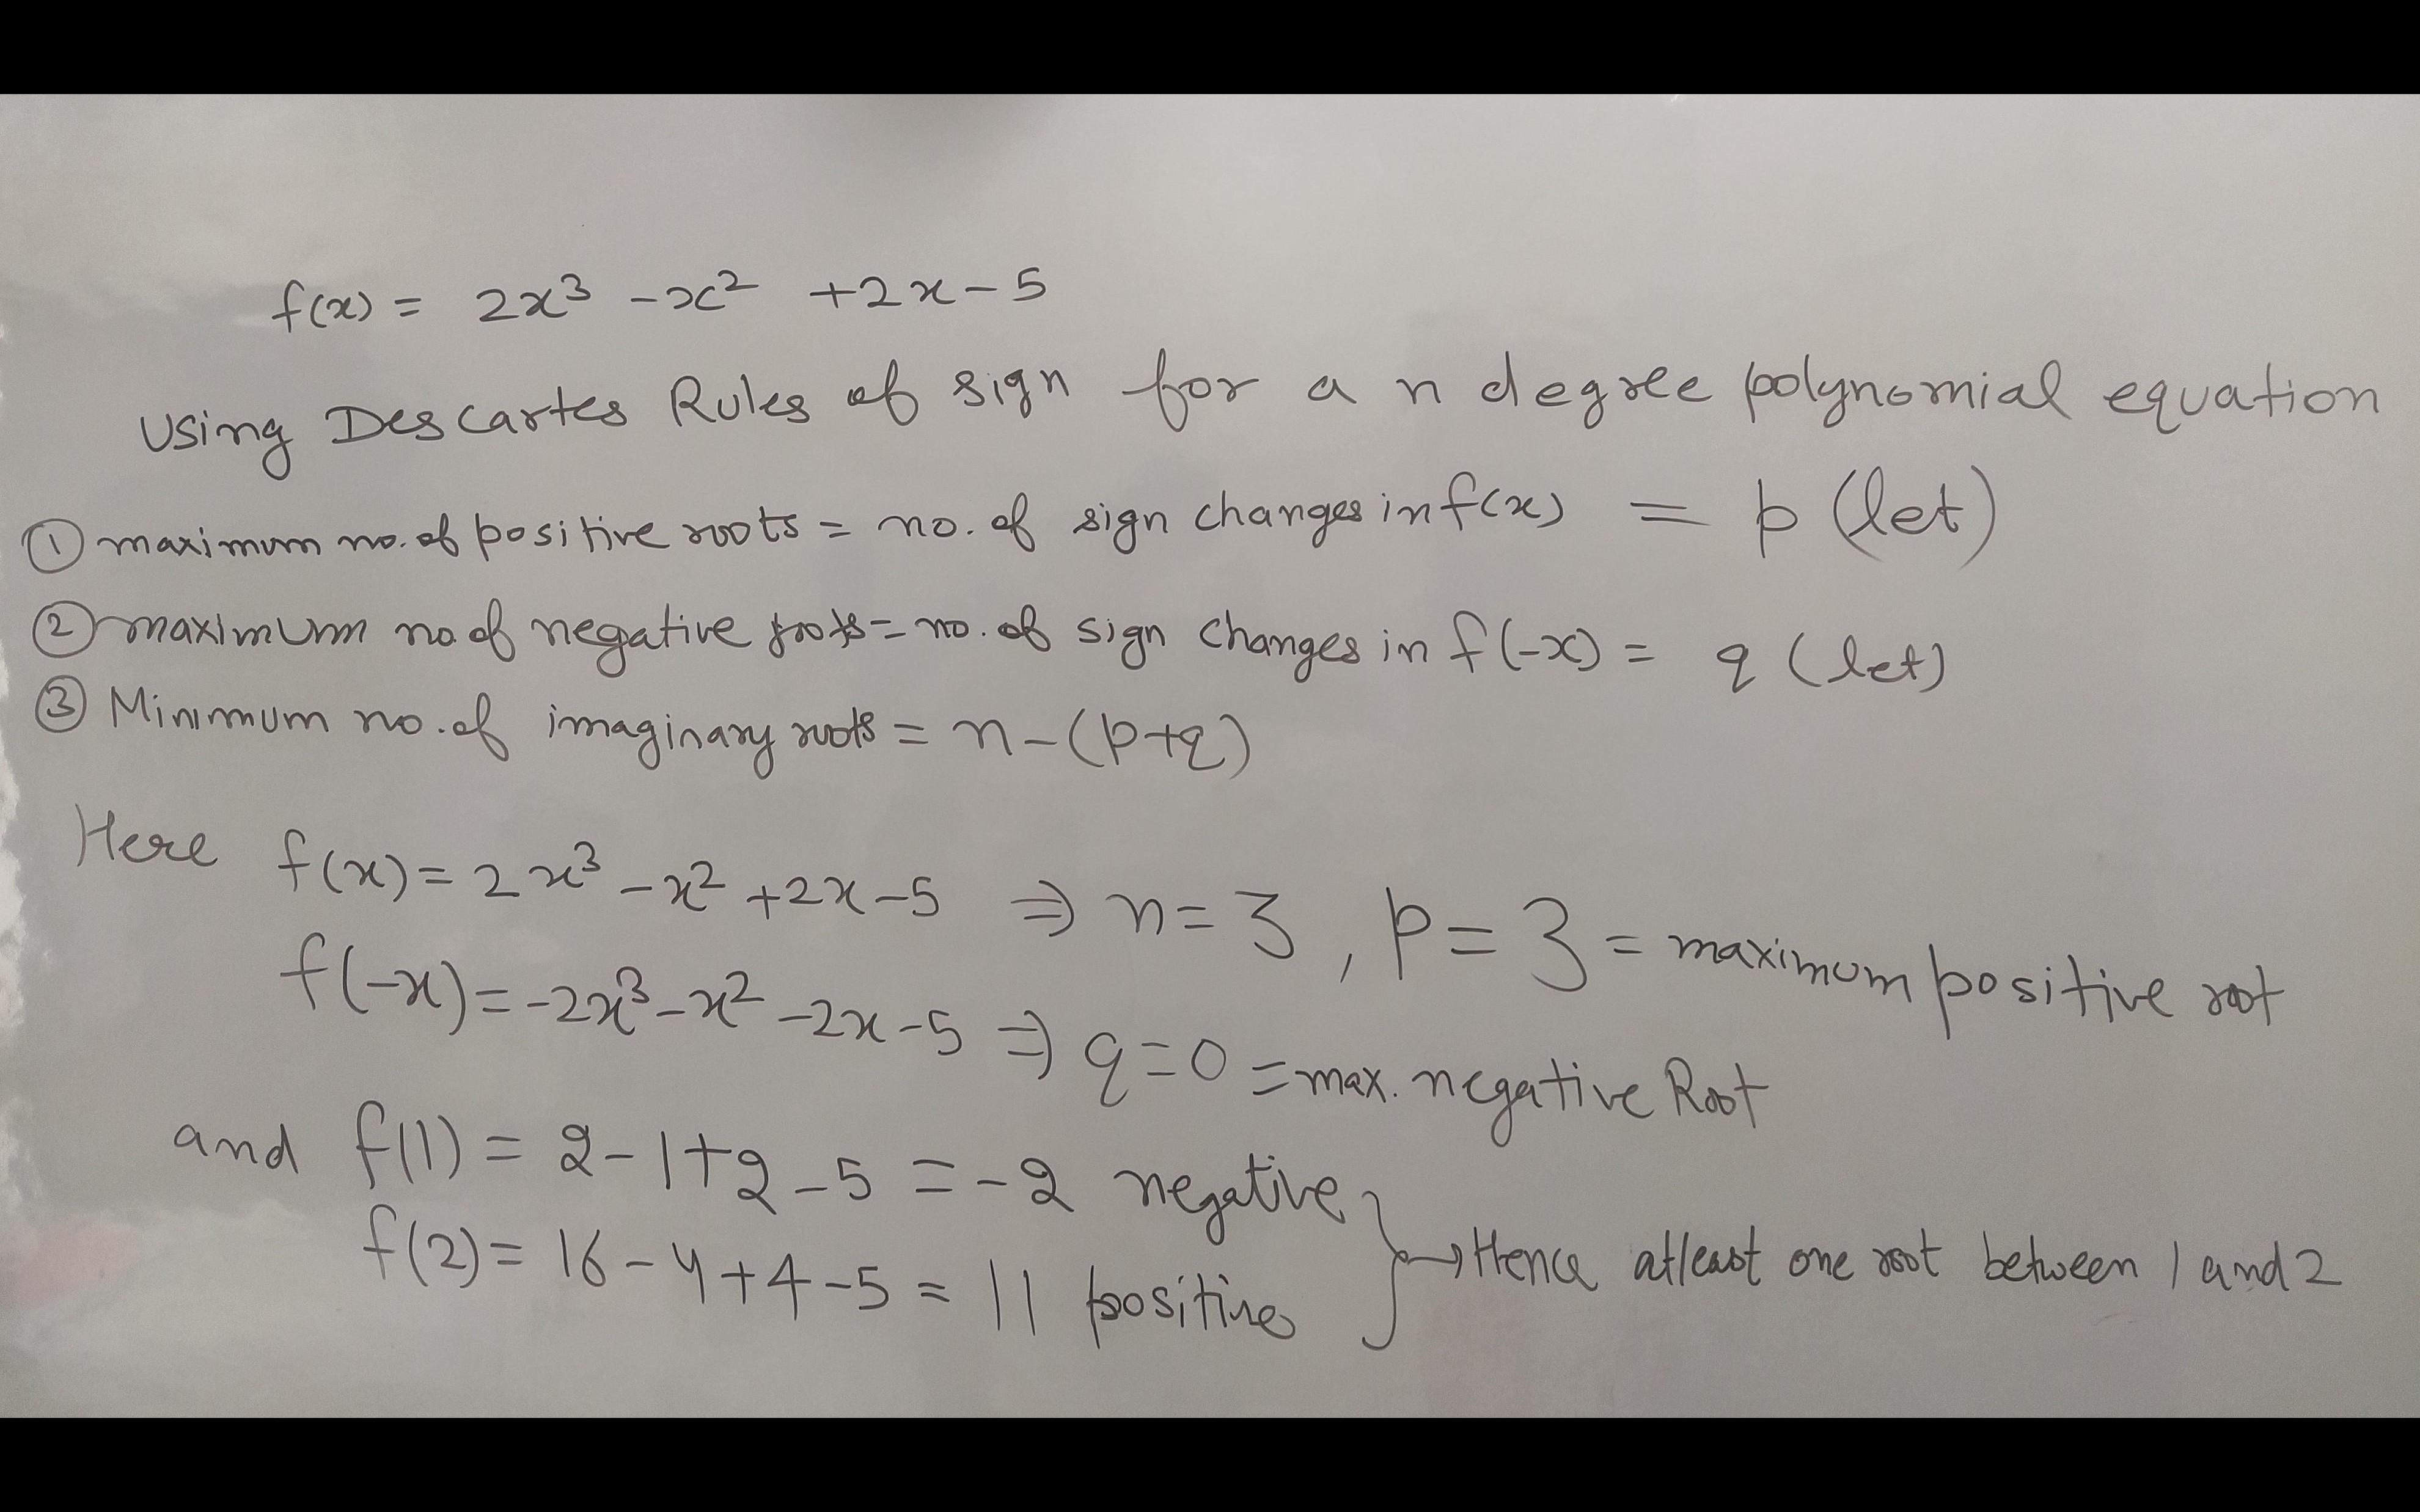 f(x) = 2x³ - x² + 2x - 5
Using Descartes Rules of sign for a n degree polynomial equation
① maximum no. of positive roots = no. of sign changes in f(x) = p (let)
② maximum no. of negative roots = no. of sign changes in f(-x) = q (let)
③ Minimum no. of imaginary roots = n - (p+q)
Here f(x) = 2x³ - x² + 2x - 5 ⇒ n = 3, p = 3 = maximum positive root
f(-x) = -2x³ - x² - 2x - 5 ⇒ q = 0 = max. negative Root
and f(1) = 2 - 1 + 2 - 5 = -2 negative
f(2) = 16 - 4 + 4 - 5 = 11 positive } → Hence atleast one root between 1 and 2